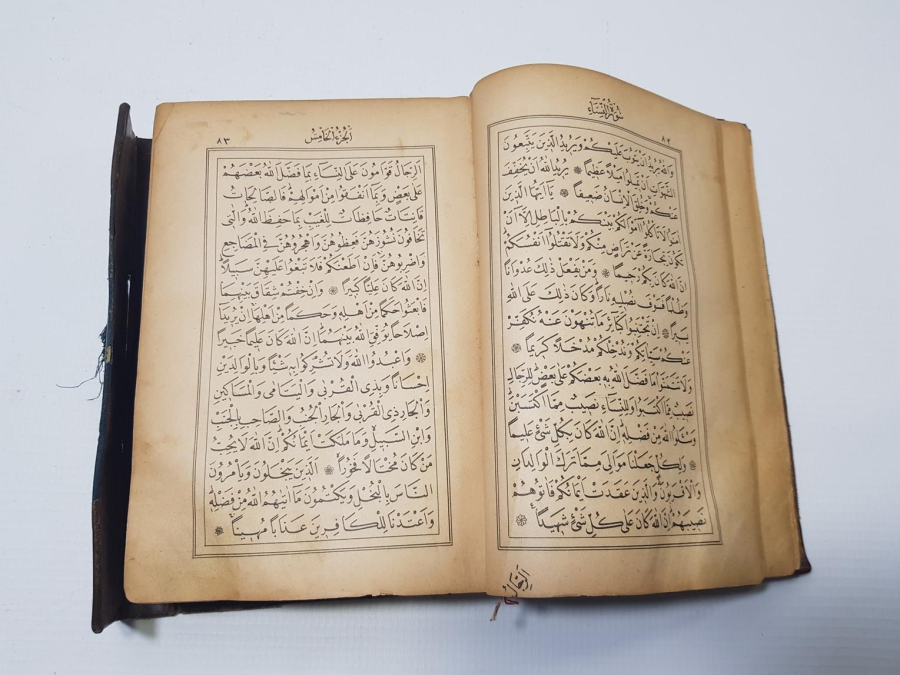 سُورَةُ النِّسَاءِ
٨٢
وَاللّٰهُ يُرِيدُ اَنْ يَتُوبَ عَلَيْكُمْ وَيُرِيدُ الَّذِينَ يَتَّبِعُونَ
الشَّهَوَاتِ اَنْ تَمِيلُوا مَيْلًا عَظِيمًا ۞ يُرِيدُ اللّٰهُ اَنْ يُخَفِّفَ
عَنْكُمْ وَخُلِقَ الْاِنْسَانُ ضَعِيفًا ۞ يَا اَيُّهَا الَّذِينَ
اٰمَنُوا لَا تَأْكُلُوا اَمْوَالَكُمْ بَيْنَكُمْ بِالْبَاطِلِ اِلَّا اَنْ
تَكُونَ تِجَارَةً عَنْ تَرَاضٍ مِنْكُمْ وَلَا تَقْتُلُوا اَنْفُسَكُمْ
اِنَّ اللّٰهَ كَانَ بِكُمْ رَحِيمًا ۞ وَمَنْ يَفْعَلْ ذٰلِكَ عُدْوَانًا
وَظُلْمًا فَسَوْفَ نُصْلِيهِ نَارًا وَكَانَ ذٰلِكَ عَلَى اللّٰهِ
يَسِيرًا ۞ اِنْ تَجْتَنِبُوا كَبَائِرَ مَا تُنْهَوْنَ عَنْهُ نُكَفِّرْ
عَنْكُمْ سَيِّاٰتِكُمْ وَنُدْخِلْكُمْ مُدْخَلًا كَرِيمًا ۞
وَلَا تَتَمَنَّوْا مَا فَضَّلَ اللّٰهُ بِهِ بَعْضَكُمْ عَلٰى بَعْضٍ لِلرِّجَالِ
نَصِيبٌ مِمَّا اكْتَسَبُوا وَلِلنِّسَاءِ نَصِيبٌ مِمَّا اكْتَسَبْنَ
وَسْئَلُوا اللّٰهَ مِنْ فَضْلِهِ اِنَّ اللّٰهَ كَانَ بِكُلِّ شَئٍ عَلِيمًا
۞ وَلِكُلٍّ جَعَلْنَا مَوَالِيَ مِمَّا تَرَكَ الْوَالِدَانِ
وَالْاَقْرَبُونَ وَالَّذِينَ عَقَدَتْ اَيْمَانُكُمْ فَاٰتُوهُمْ
نَصِيبَهُمْ اِنَّ اللّٰهَ كَانَ عَلٰى كُلِّ شَئٍ شَهِيدًا ۞
اَلرِّجَالُ
اَلْجُزْءُ الْخَامِسُ
٨٣
اَلرِّجَالُ قَوَّامُونَ عَلَى النِّسَاءِ بِمَا فَضَّلَ اللّٰهُ بَعْضَهُمْ
عَلٰى بَعْضٍ وَبِمَا اَنْفَقُوا مِنْ اَمْوَالِهِمْ فَالصَّالِحَاتُ
قَانِتَاتٌ حَافِظَاتٌ لِلْغَيْبِ بِمَا حَفِظَ اللّٰهُ وَالّٰتِي
تَخَافُونَ نُشُوزَهُنَّ فَعِظُوهُنَّ وَاهْجُرُوهُنَّ فِي الْمَضَاجِعِ
وَاضْرِبُوهُنَّ فَاِنْ اَطَعْنَكُمْ فَلَا تَبْغُوا عَلَيْهِنَّ سَبِيلًا
اِنَّ اللّٰهَ كَانَ عَلِيًّا كَبِيرًا ۞ وَاِنْ خِفْتُمْ شِقَاقَ بَيْنِهِمَا
فَابْعَثُوا حَكَمًا مِنْ اَهْلِهِ وَحَكَمًا مِنْ اَهْلِهَا اِنْ يُرِيدَا
اِصْلَاحًا يُوَفِّقِ اللّٰهُ بَيْنَهُمَا اِنَّ اللّٰهَ كَانَ عَلِيمًا خَبِيرًا
۞ وَاعْبُدُوا اللّٰهَ وَلَا تُشْرِكُوا بِهِ شَيْئًا وَبِالْوَالِدَيْنِ
اِحْسَانًا وَبِذِي الْقُرْبٰى وَالْيَتَامٰى وَالْمَسَاكِينِ
وَالْجَارِ ذِي الْقُرْبٰى وَالْجَارِ الْجُنُبِ وَالصَّاحِبِ بِالْجَنْبِ
وَابْنِ السَّبِيلِ وَمَا مَلَكَتْ اَيْمَانُكُمْ اِنَّ اللّٰهَ لَا يُحِبُّ
مَنْ كَانَ مُخْتَالًا فَخُورًا ۞ اَلَّذِينَ يَبْخَلُونَ وَيَأْمُرُونَ
النَّاسَ بِالْبُخْلِ وَيَكْتُمُونَ مَا اٰتٰيهُمُ اللّٰهُ مِنْ فَضْلِهِ
وَاَعْتَدْنَا لِلْكَافِرِينَ عَذَابًا مُهِينًا ۞